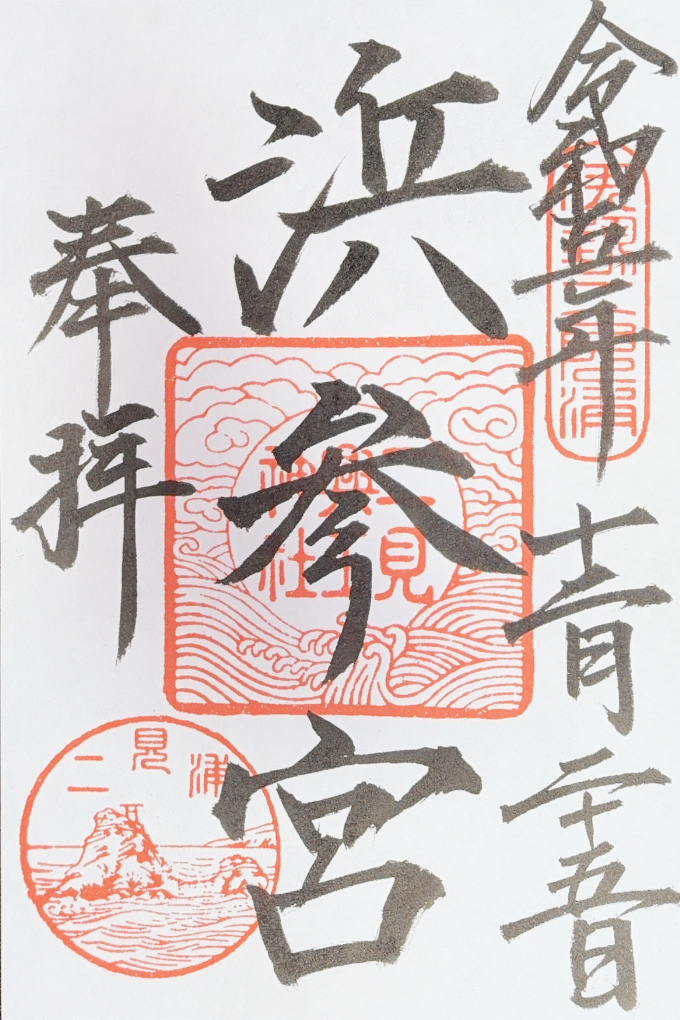 令和五年十二月二十五日
浜参宮
奉拝
二見興玉神社
二見浦